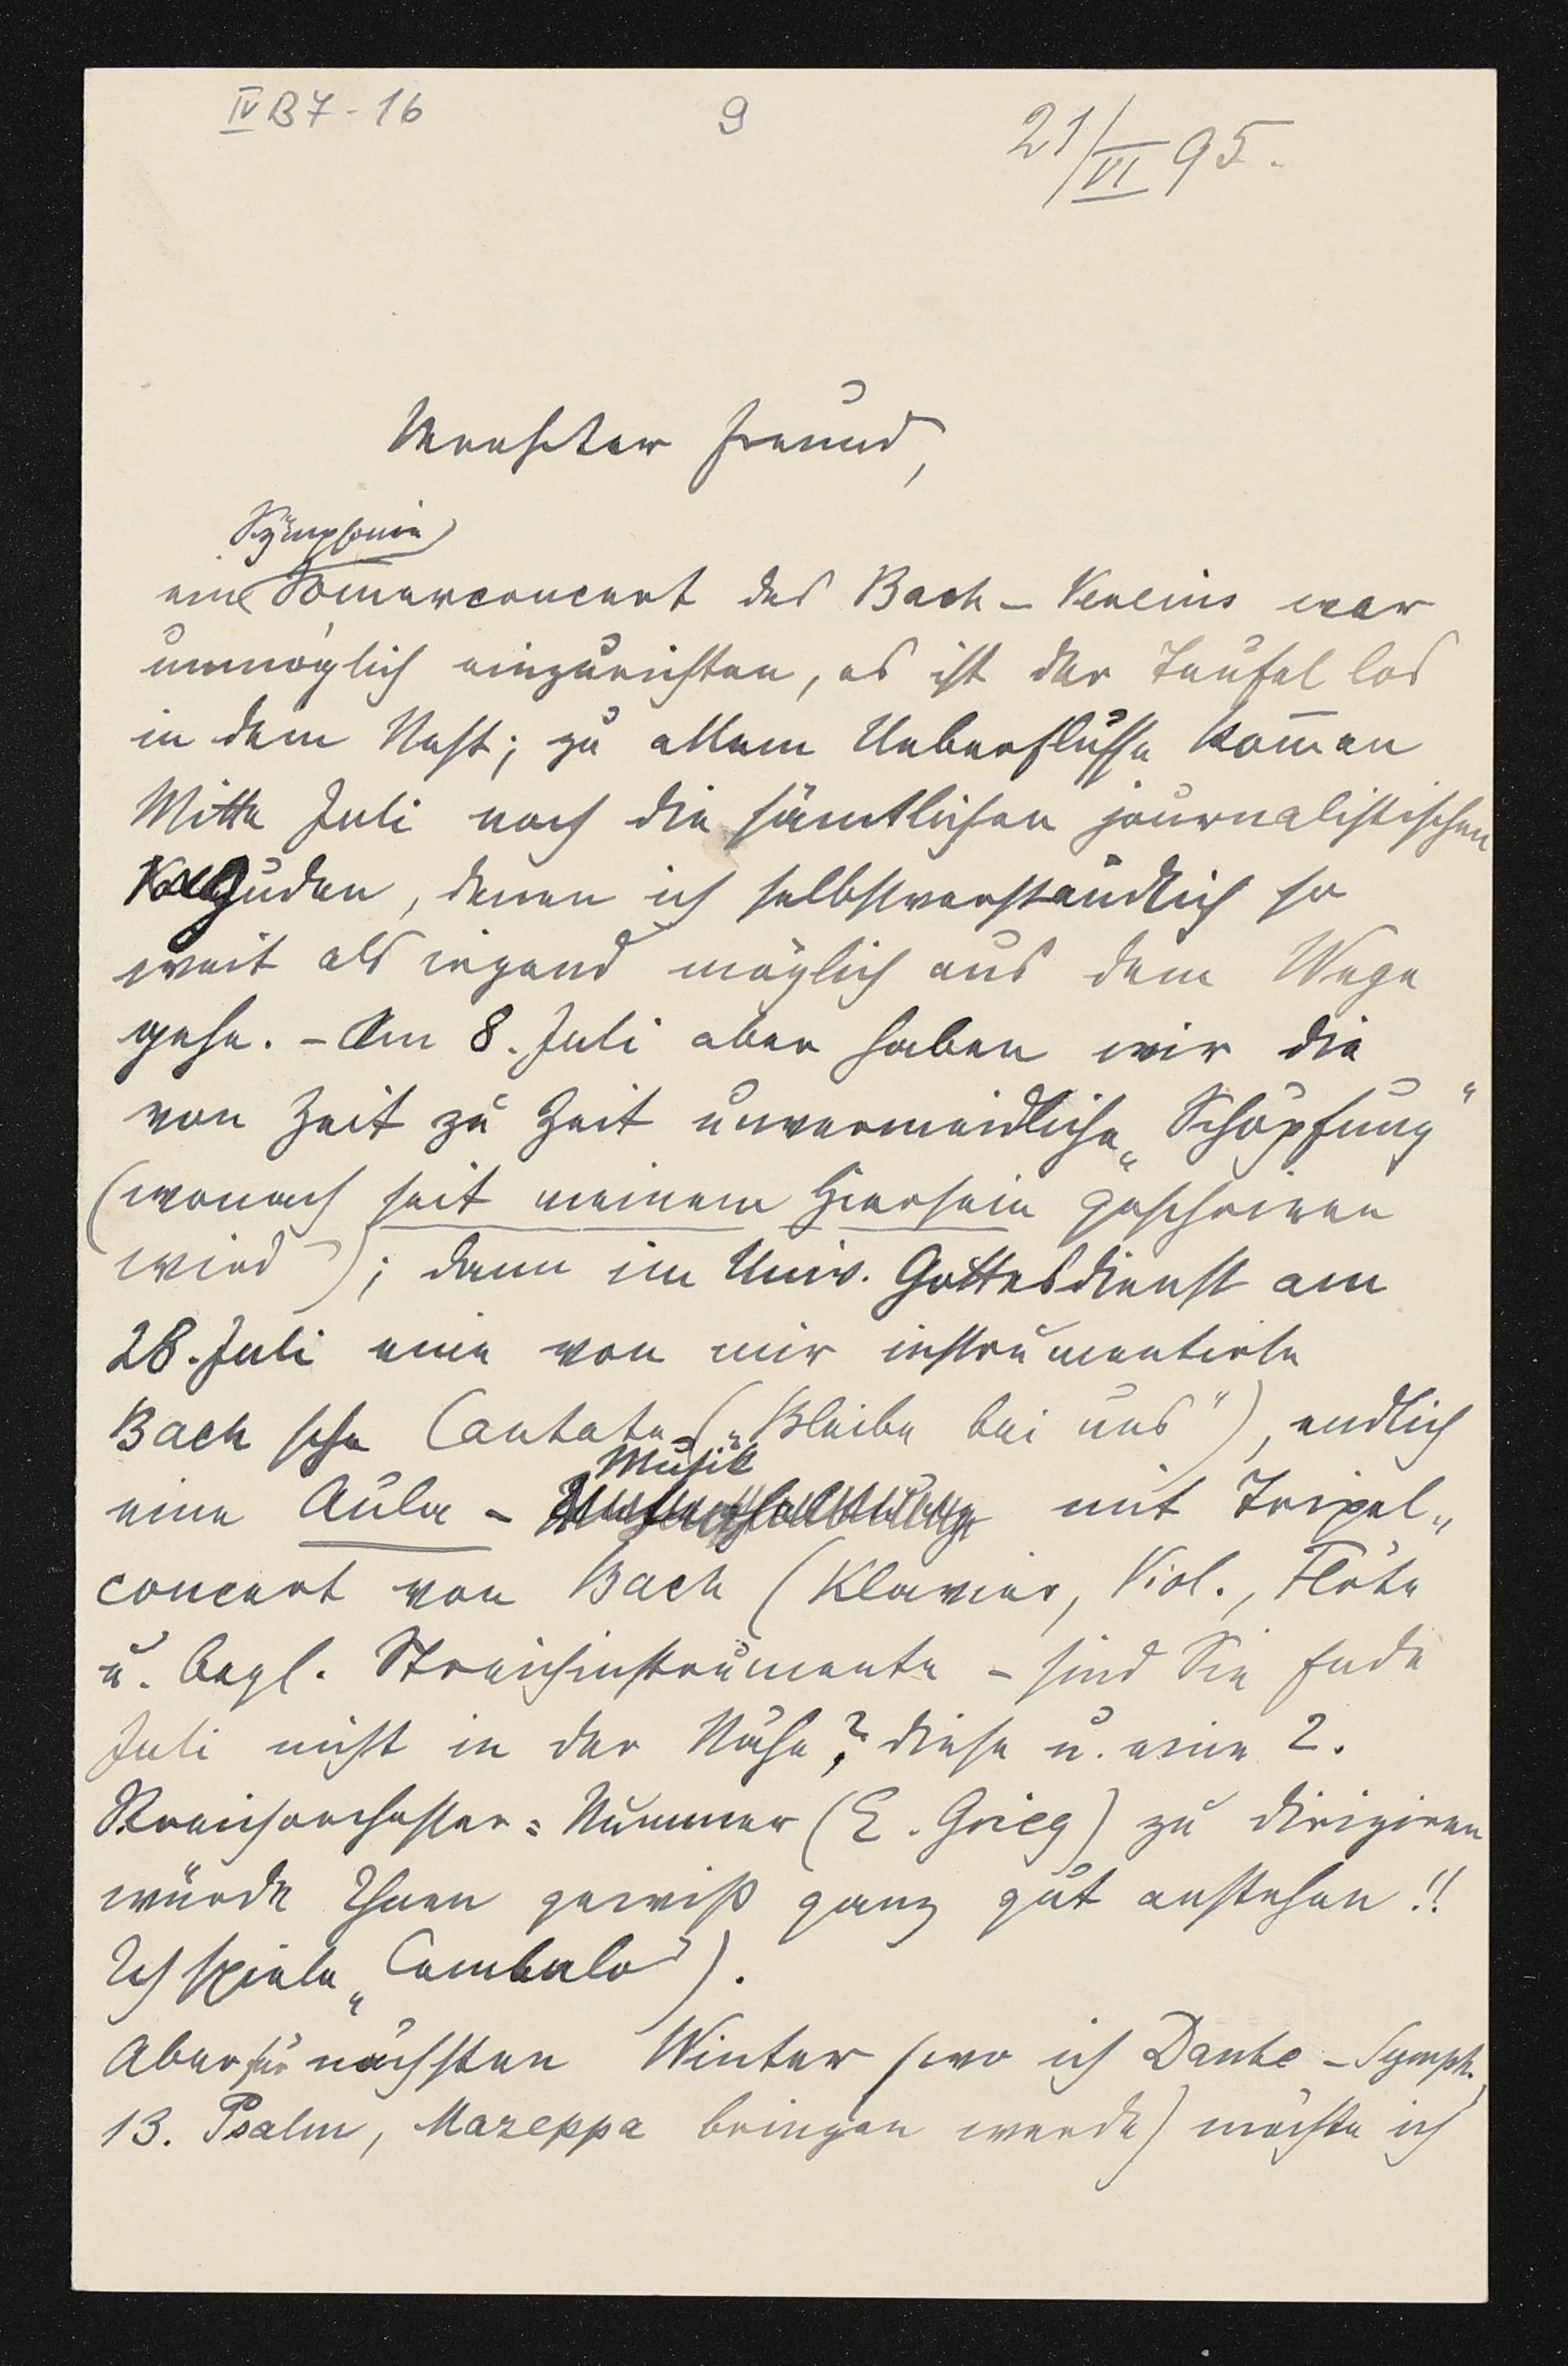 IV B 7 - 16
9
21/VI 95.
Verehrter Freund,
Symphonie
ein Somerconcert des Bach-Vereins war
unmöglich einzurichten, es ist der Teufel los
in dem Nest; zu allem Ueberflusse komen
Mitte Juli noch die sämtlichen journalistischen
Juden, denen ich selbstverständlich so
weit als irgend möglich aus dem Wege
gehe. - Am 8. Juli aber haben wir die
von Zeit zu Zeit unvermeidliche „Schöpfung"
(wonach seit meinem Hiersein geschrieen
wird); dann im Univ. Gottesdienst am
28. Juli eine von mir instrumentirte
Bach sche Cantate („Bleibe bei uns"), endlich
Musik
eine Aula - mit Tripel„
concert von Bach (Klavier, Viol., Flöte
u. begl. Streichinstrumente - sind Sie Ende
Juli nicht in der Nähe? diese u. eine 2.
Streichorchester = Nummer (E. Grieg) zu dirigiren
würde Ihnen gewiß ganz gut anstehen!!
Ich spiele „Cembalo").
Aber für nächsten Winter (wo ich Dante - Symph.
13. Psalm, Mazeppa bringen werde) möchte ich